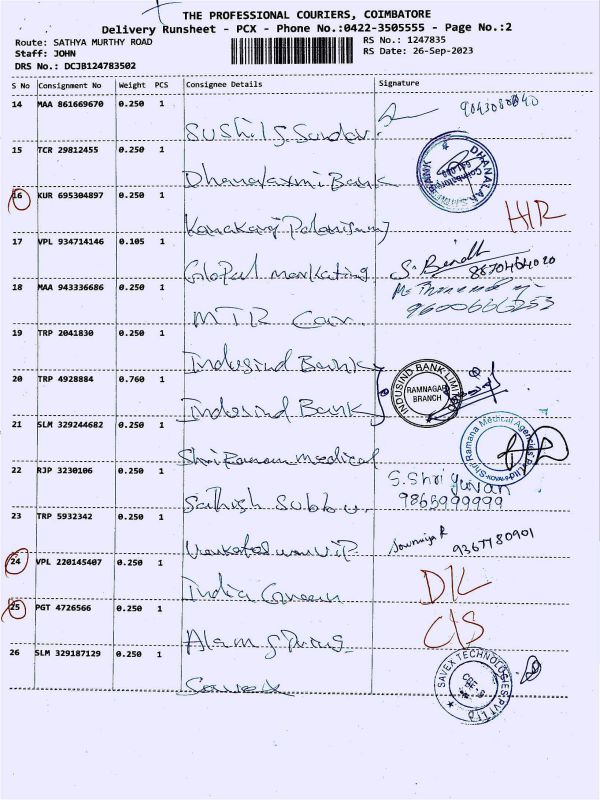 THE PROFESSIONAL COURIERS, COIMBATORE
Delivery Runsheet - PCX - Phone No.:0422-3505555 - Page No.:2
Route: SATHYA MURTHY ROAD
Staff: JOHN
DRS No.: DCJB124783502
RS No.: 1247835
RS Date: 26-Sep-2023
S No Consignment No Weight PCS Consignee Details Signature
14 MAA 861669670 0.250 1
Sushil S. Sundar.
15 TCR 29812455 0.250 1
Dhanalaxmi Bank
16 KUR 695304897 0.250 1
HR
17 VPL 934714146 0.105 1
Glopal markating S. Bindh 8870464020
18 MAA 943336686 0.250 1
9600666253
MTR Car.
19 TRP 2041830 0.250 1
Indusind Bank
20 TRP 4928884 0.760 1
INDUSIND BANK LIMITED
RAMNAGAR
BRANCH
Indusind Bank
21 SLM 329244682 0.250 1
Shri Ramana Medical Agencies
Shri Ramana medical
22 RJP 3230106 0.250 1
S. Shri yuvan
9865999999
Sathish Subbu.
23 TRP 5932342 0.250 1
Sowmiya R 9367780901
Venkateswaran V.P.
24 VPL 220145407 0.250 1
DIL
India Green
25 PGT 4726566 0.250 1
C/S
26 SLM 329187129 0.250 1
SAVEX TECHNOLOGIES PVT LTD
Savex